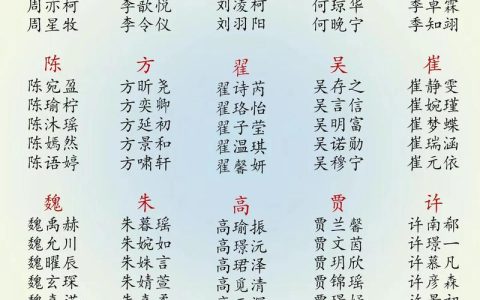 周亦柯 李歆悦 刘凌柯 何琼华 李卓霖
周星牧 李令仪 刘羽阳 何晚宁 李知翊
陈 方 翟 吴 崔
陈宛盈 方昕尧 翟诗芮 吴存之 崔静雯
陈瑜柠 方奕卿 翟珞怡 吴言信 崔婉瑾
陈沐瑶 方延初 翟子莹 吴明富 崔梦蝶
陈嫣然 方景和 翟温琪 吴诺勋 崔瑞涵
陈语婷 方啸轩 翟馨妍 吴穆宁 崔元依
魏 朱 高 贾 许
魏禹赫 朱暮瑶 高瑜振 贾兰馨 许南郗
魏允川 朱婉如 高璟沅 贾文茵 许璟一
魏曜辰 朱姝言 高珺泽 贾玥欣 许慕凡
魏玄琛 朱婧萱 高觅清 贾锦瑶 许彦森